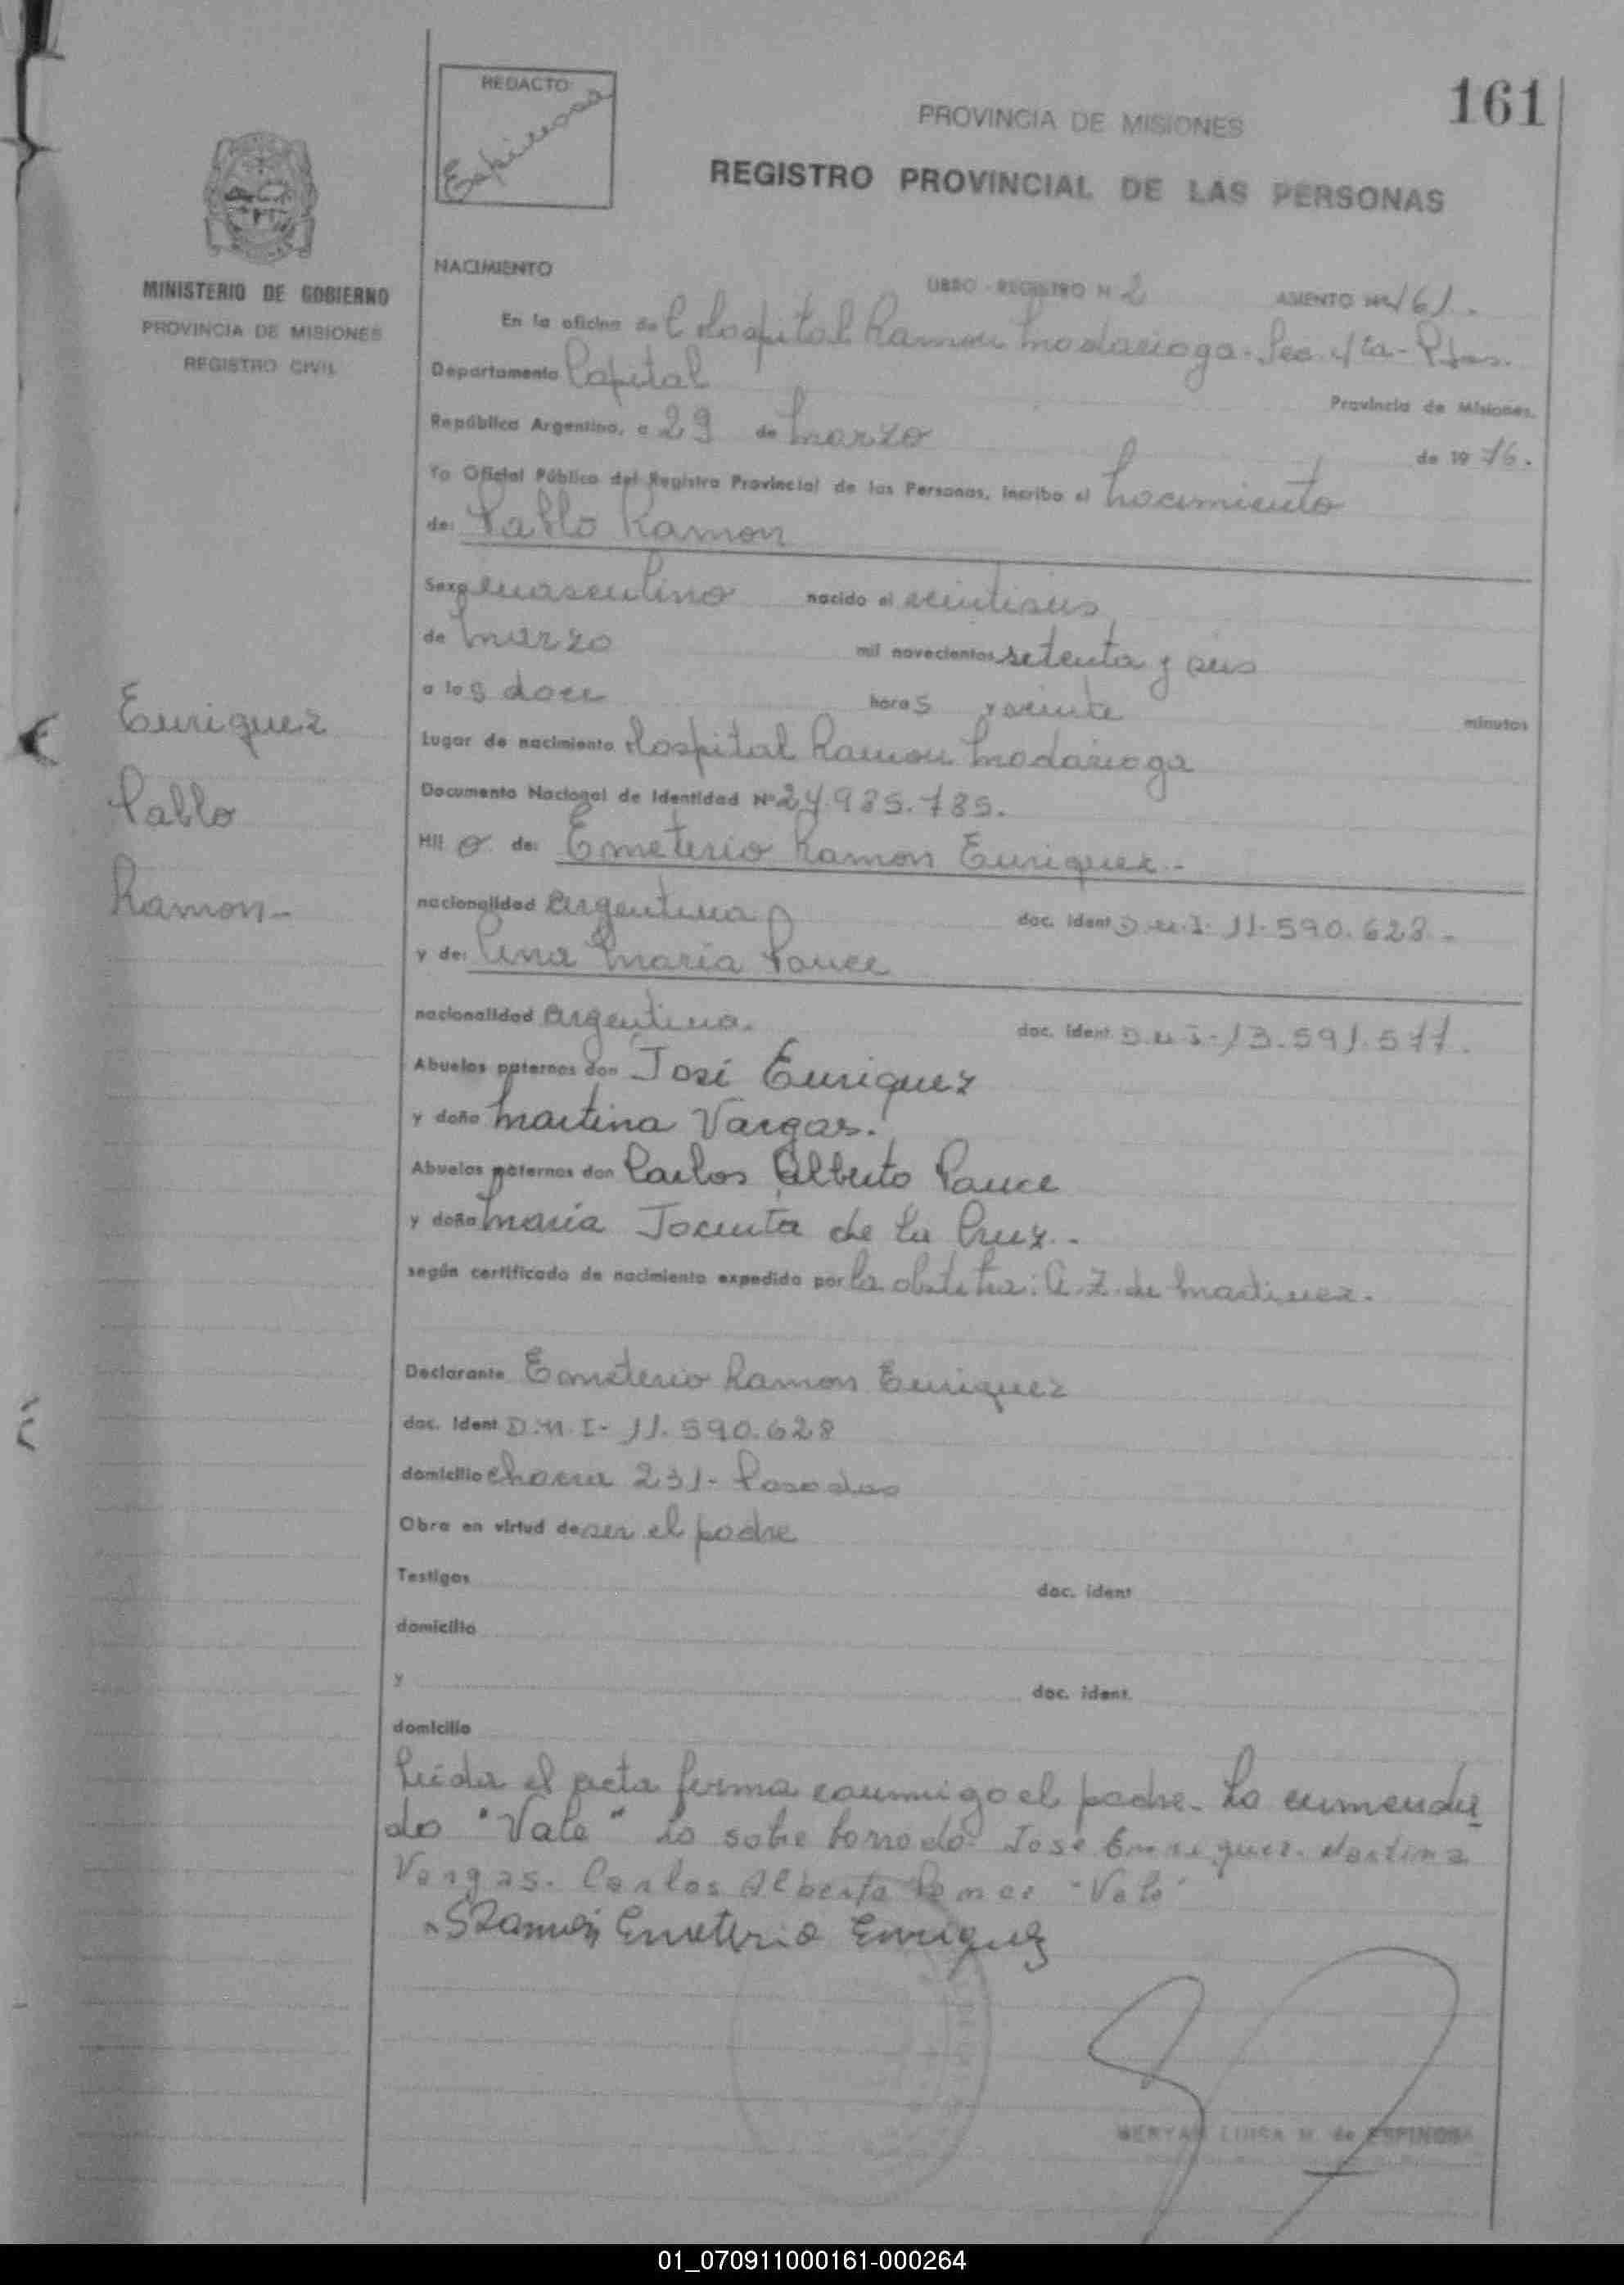 161
REDACTO
Espinosa
PROVINCIA DE MISIONES
REGISTRO PROVINCIAL DE LAS PERSONAS
MINISTERIO DE GOBIERNO
PROVINCIA DE MISIONES
REGISTRO CIVIL
NACIMIENTO
LIBRO - REGISTRO N 2 ASIENTO Nº 161.
En la oficina del Hospital Ramon Madariaga. Sec. 4ta - Pdas.
Departamento Capital Provincia de Misiones.
República Argentina, a 29 de Marzo de 19 76.
Yo Oficial Público del Registro Provincial de las Personas, inscribo el Nacimiento
de: Pablo Ramon
Sexo masculino nacido el veintiseis
de Marzo mil novecientos setenta y seis
a las doce horas y veinte minutos
Lugar de nacimiento Hospital Ramon Madariaga
Documento Nacional de Identidad Nº 24.985.785.
Hijo de: Emeterio Ramon Enriquez -
nacionalidad Argentina doc. ident D.N.I. 11.590.628 -
y de: Ana Maria Ponce
nacionalidad Argentina. doc. ident D.N.I - 13.591.577.
Abuelos paternos don José Enriquez
y doña Martina Vargas.
Abuelos maternos don Carlos Alberto Ponce
y doña Maria Jacinta de La Cruz. -
según certificado de nacimiento expedido por la obstetra: A. Z. de Martinez.
Declarante Emeterio Ramon Enriquez
doc. Ident D.N.I - 11.590.628
domicilio chacra 231 - Posadas
Obra en virtud de ser el padre
Testigos doc. ident
domicilio
y doc. ident.
domicilio
Leida el acta firma conmigo el padre. Lo enmenda
do "Vale" Lo sobre borrado José Enriquez. Martina
Vargas. Carlos Alberto Ponce "Vale"
Ramón Emeterio Enriquez
LUISA M. de ESPINOSA
Enriquez
Pablo
Ramon -
01_070911000161-000264